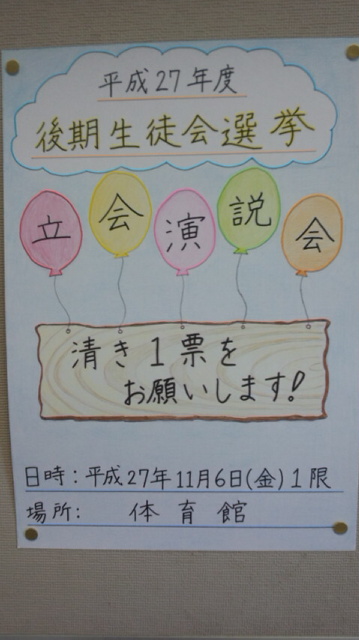 平成27年度
後期生徒会選挙
立会演説会
清き1票を
お願いします!
日時:平成27年11月6日(金)1限
場所: 体育館